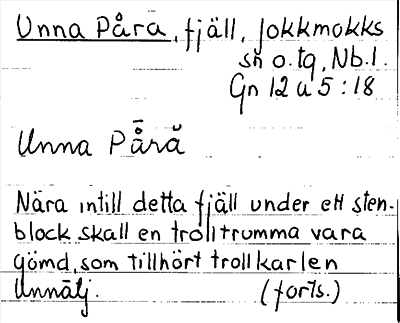 Unna Påra, fjäll, Jokkmokks
sn o. tg, Nb.l.
Gn 12 a 5 : 18
Unna På̄ră
Nära intill detta fjäll under ett sten-
block skall en trolltrumma vara
gömd, som tillhört trollkarlen
Unnātj. (forts.)